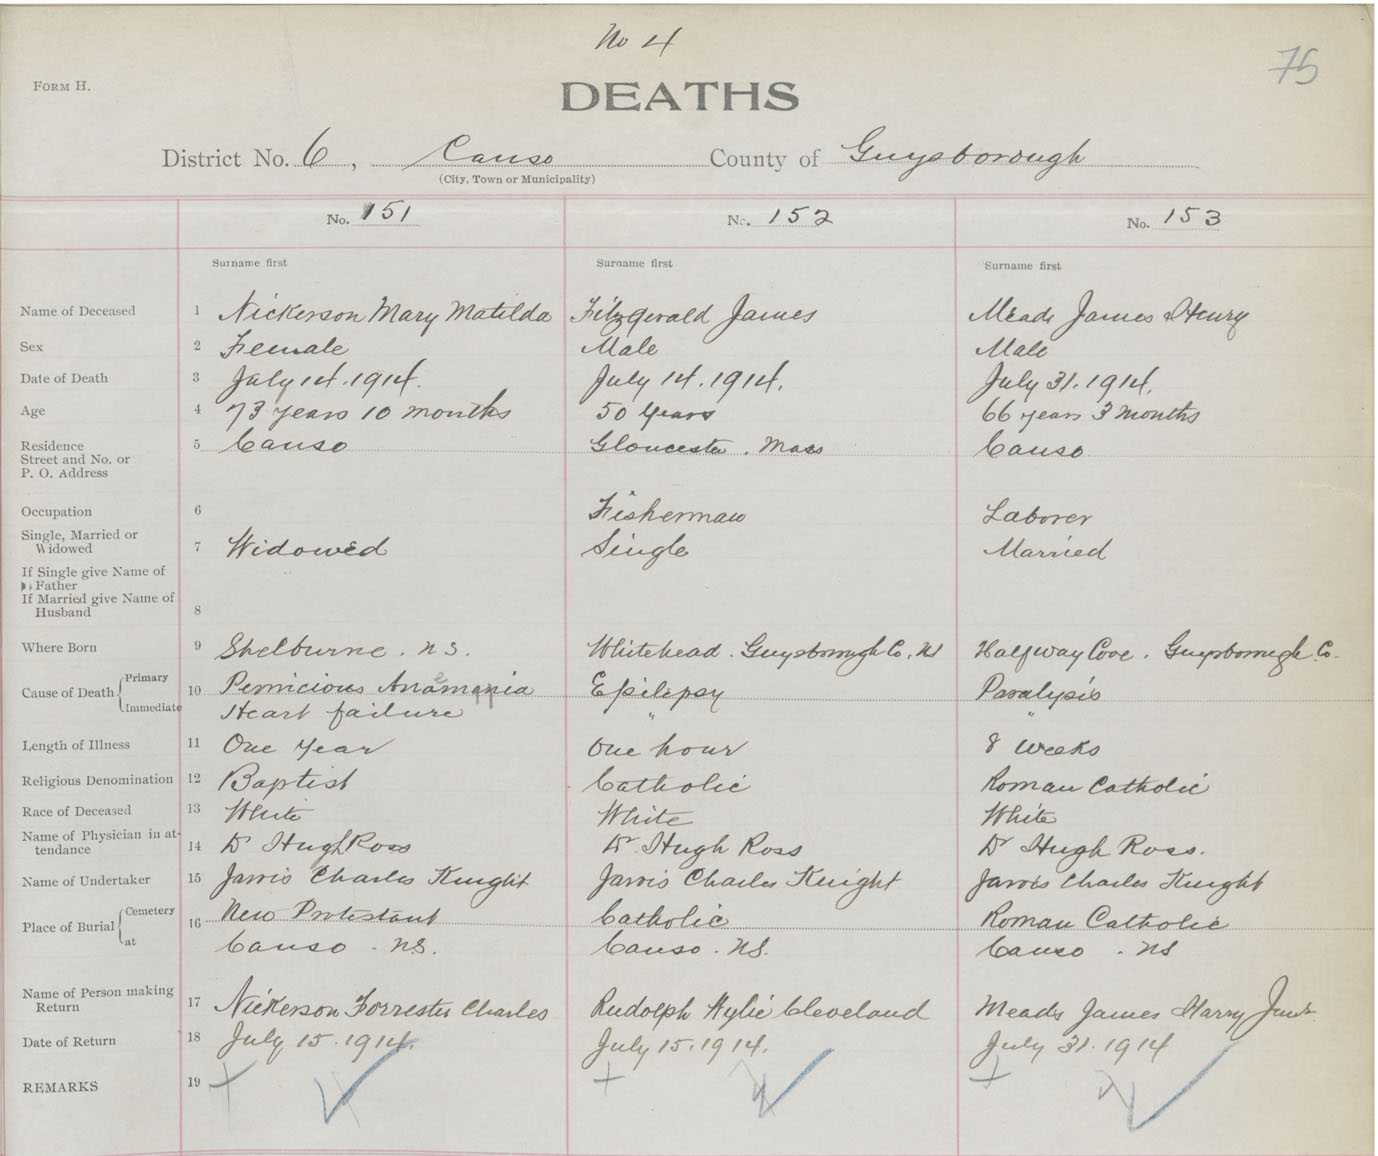 No 4
75
FORM H.
DEATHS
District No. 6, Canso County of Guysborough
(City, Town or Municipality)
No. 151 No. 152 No. 153
Surname first Surname first Surname first
Name of Deceased 1 Nickerson Mary Matilda Fitzgerald James Meads James Henry
Sex 2 Female Male Male
Date of Death 3 July 14. 1914. July 14. 1914. July 31. 1914.
Age 4 73 years 10 months 50 years 66 years 3 months
Residence 5 Canso Gloucester. Mass Canso
Street and No. or
P. O. Address
Occupation 6 Fisherman Laborer
Single, Married or
Widowed 7 Widowed Single Married
If Single give Name of
Father
If Married give Name of
Husband 8
Where Born 9 Shelburne. N S. Whitehead. Guysborough Co. NS Halfway Cove. Guysborough Co.
Cause of Death { Primary 10 Pernicious Epilepsy Paralysis
Immediate Heart failure " "
Length of Illness 11 One Year One hour 8 weeks
Religious Denomination 12 Baptist Catholic Roman Catholic
Race of Deceased 13 White White White
Name of Physician in at-
tendance 14 Dr Hugh Ross Dr Hugh Ross Dr Hugh Ross.
Name of Undertaker 15 Jarvis Charles Knight Jarvis Charles Knight Jarvis Charles Knight
Place of Burial { Cemetery 16 New Protestant Catholic Roman Catholic
at Canso. N S. Canso. N S. Canso. N S
Name of Person making
Return 17 Nickerson Forrester Charles Rudolph Wylie Cleveland Meads James Harry Junr
Date of Return 18 July 15. 1914. July 15. 1914. July 31. 1914
REMARKS 19